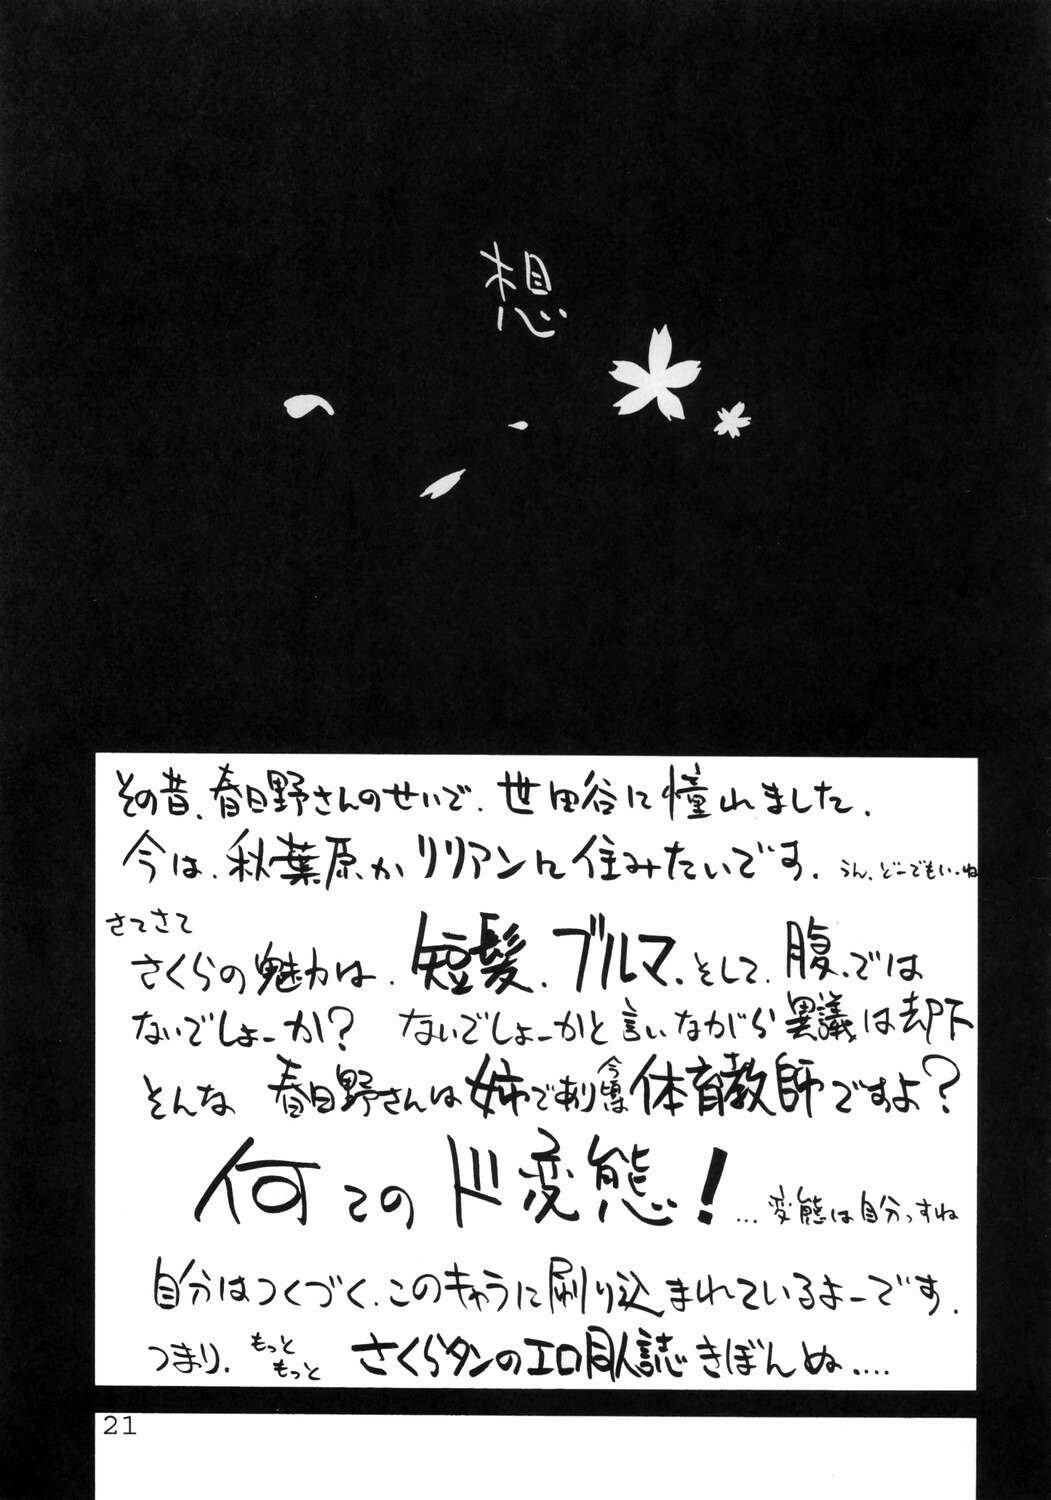 想
その昔、春日野さんのせいで、世田谷に憧れました。
今は、秋葉原かリリアンに住みたいです。うん、どーでもいーね
さてさて
さくらの魅力は、短髪、ブルマ、そして、腹、では
ないでしょーか? ないでしょーかと言いながら異議は却下
そんな 春日野さんは姉であり今頃は体育教師ですよ?
何てのド変態!...変態は自分っすね
自分はつくづく、このキャラに刷り込まれているよーです。
つまり、もっともっと さくらタンのエロ同人誌きぼんぬ....
21